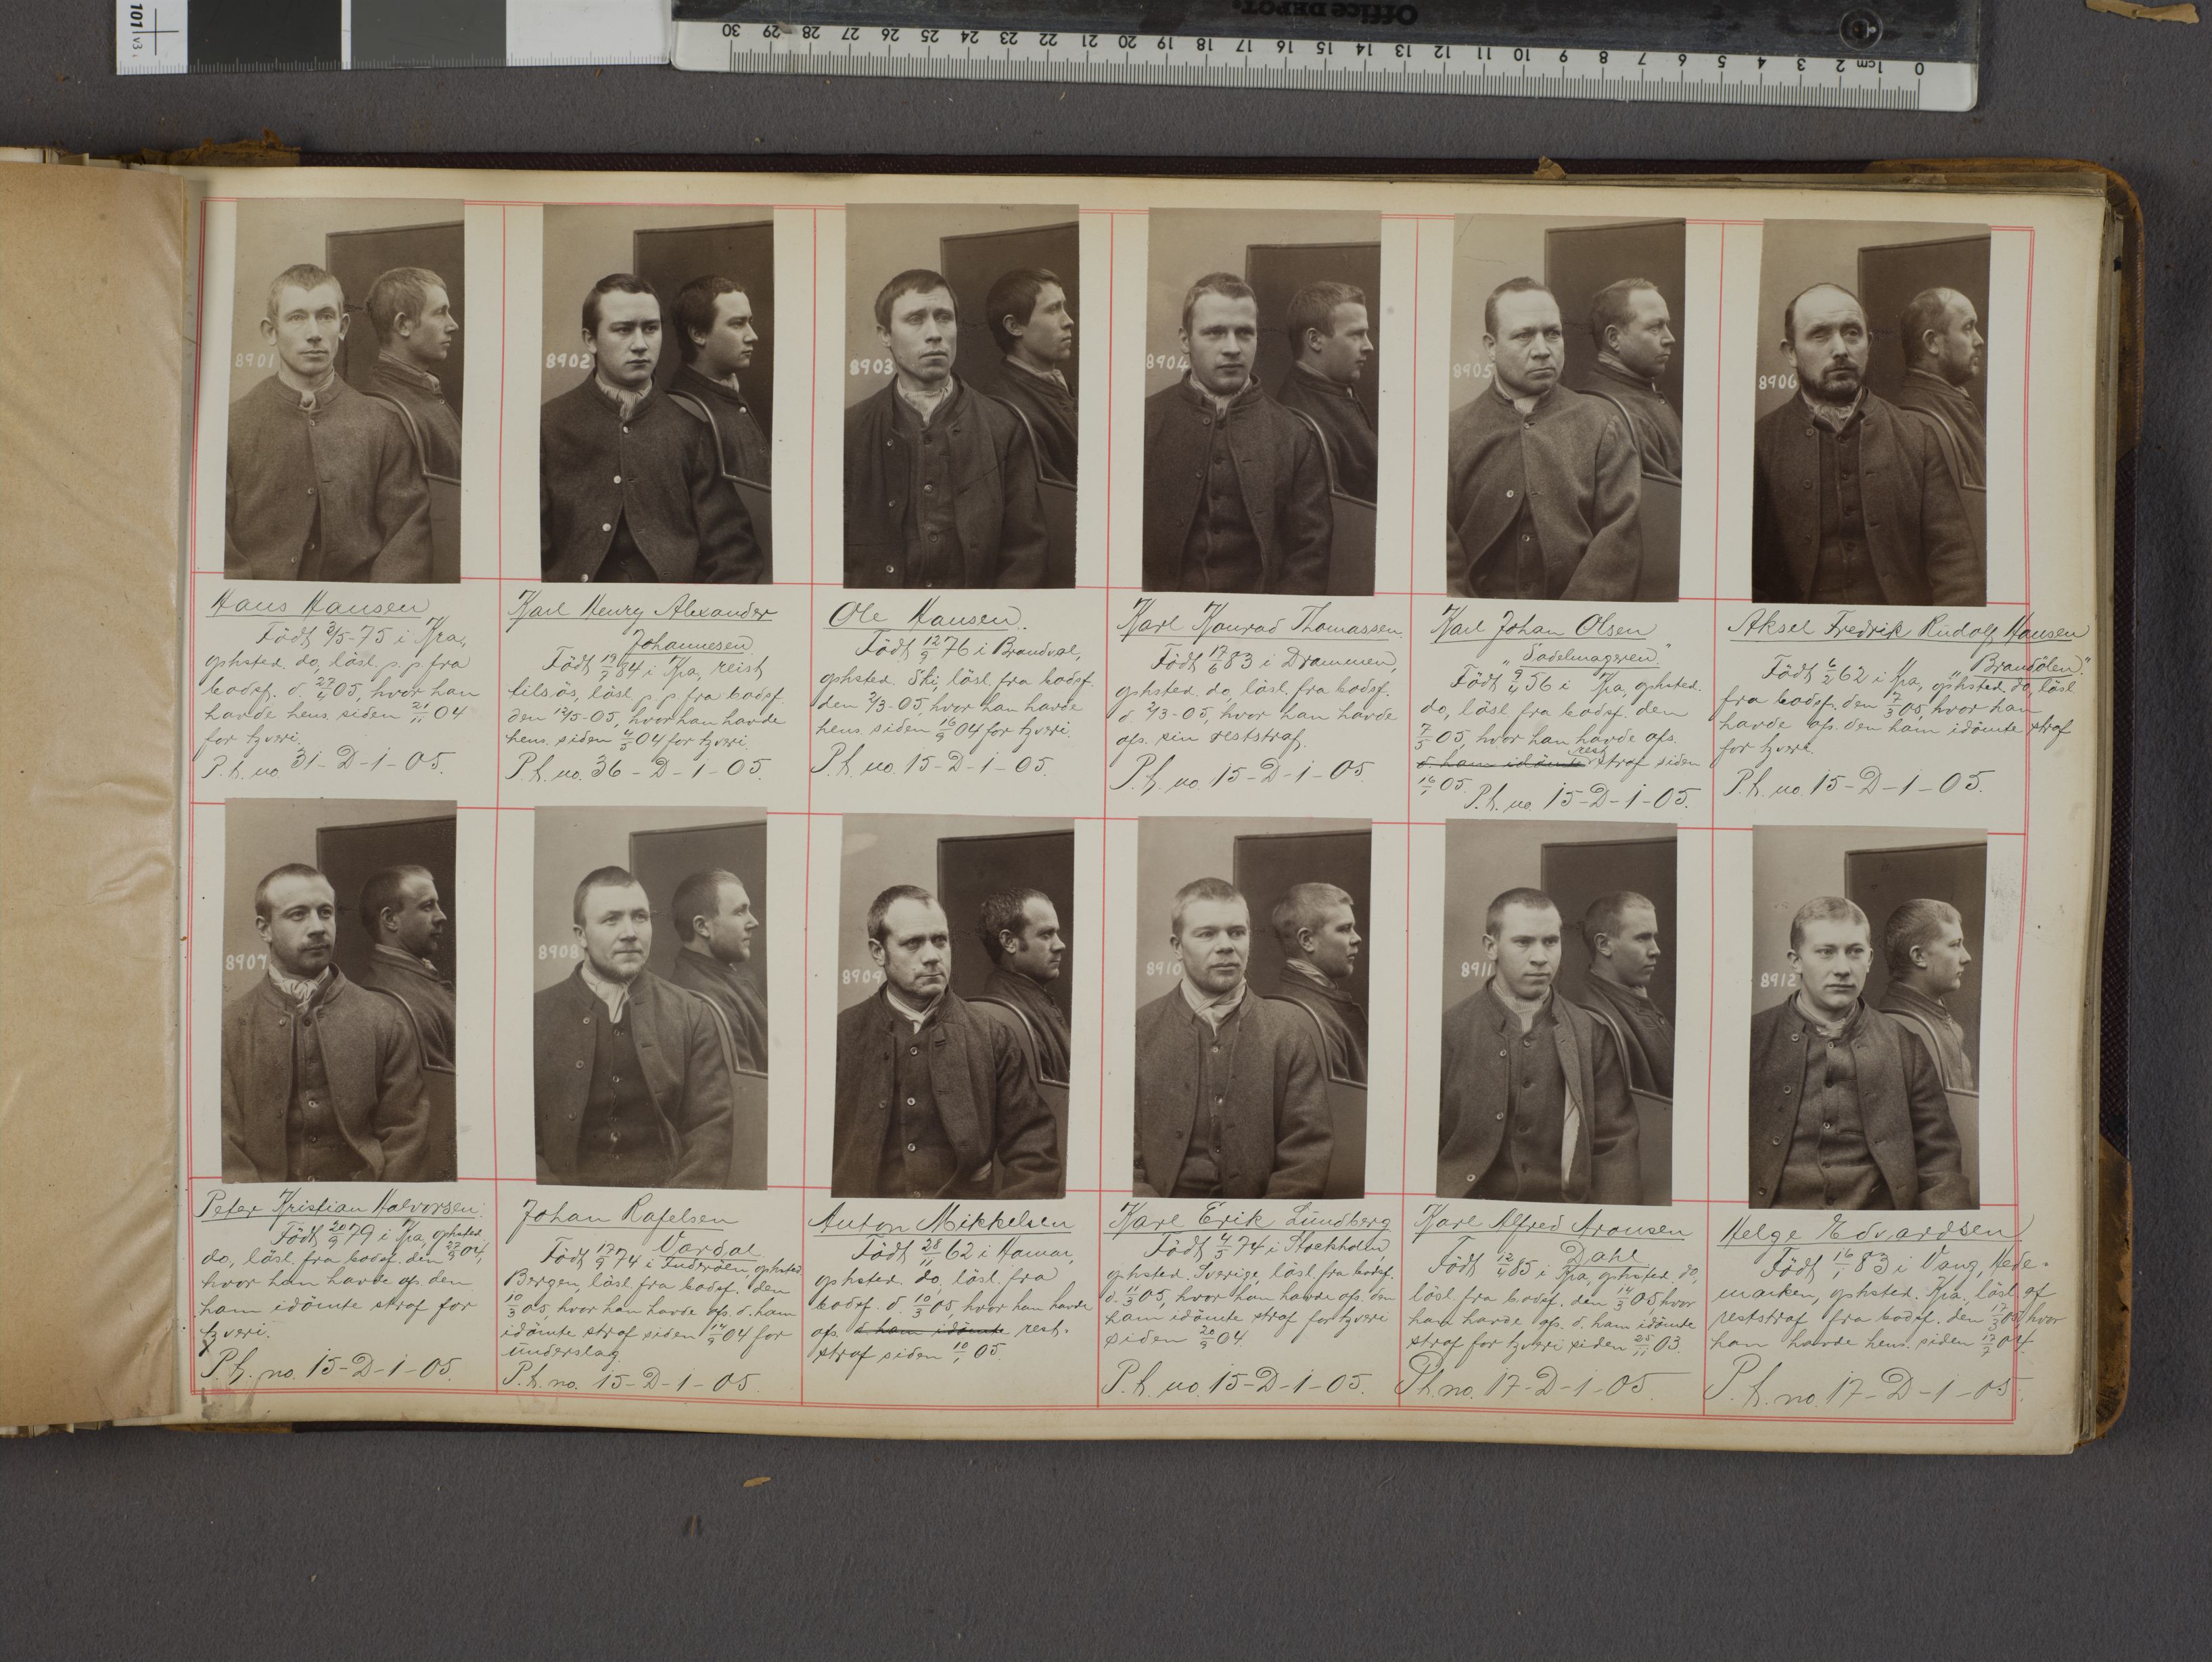 101 v3.
Office DEPOT.
30 29 28 27 26 25 24 23 22 21 20 19 18 17 16 15 14 13 12 11 10 9 8 7 6 5 4 3 2 1cm 0
8901
8902
8903
8904
8905
8906
Hans Hansen
Födt 3/5-75 i Kra,
ophsted. do, lösl. p. p. fra
bodsf. d. 27/4 05, hvor han
havde hens. siden 21/11 04
for tyveri.
P. h. no. 31-D-1-05.
Karl Henry Alexander
Johannesen
Födt 19/7 84 i Kra, reist
tilsös, lösl. p. p. fra bodsf.
den 12/5-05, hvor han havde
hens. siden 4/5 04 for tyveri.
P. h. no. 36-D-1-05.
Ole Hansen.
Födt 12/9 76 i Brandval,
ophsted. Ski, lösl. fra bodsf.
den 2/3-05, hvor han havde
hens. siden 16/9 04 for tyveri.
P. h. no. 15-D-1-05.
Karl Konrad Thomassen.
Födt 17/6 83 i Drammen,
ophsted. do, lösl. fra bodsf.
d. 2/3-05, hvor han havde
afs. sin reststraf.
P. h. no. 15-D-1-05.
Karl Johan Olsen
"Sadelmageren."
Födt 9/4 56 i Kra, ophsted.
do, lösl. fra bodsf. den
7/3 05, hvor han havde afs.
d. ham idömte rest straf siden
16/1 05.
P. h. no. 15-D-1-05.
Aksel Fredrik Rudolf Hansen
"Brandölen."
Födt 6/2 62 i Kra, ophsted. do, lösl
fra bodsf. den 7/3 05, hvor han
havde afs. den ham idömte straf
for tyveri.
P. h. no. 15-D-1-05.
8907
8908
8909
8910
8911
8912
Peter Kristian Halvorsen.
Födt 20/9 79 i Kra, ophsted.
do, lösl. fra bodsf. den 27/9 04,
hvor han havde afs. den
ham idömte straf for
tyveri.
P. h. no. 15-D-1-05.
Johan Rafelsen
Vardal
Födt 17/9 74 i Inderöen, ophsted.
Bergen, lösl. fra bodsf. den
10/3 05, hvor han havde afs. d. ham
idömte straf siden 14/9 04 for
underslag.
P. h. no. 15-D-1-05.
Anton Mikkelsen
Födt 28/11 62 i Hamar,
ophsted. do, lösl. fra
bodsf. d. 10/3 05 hvor han havde
afs. d. ham idömte rest-
straf siden 10/1 05.
Karl Erik Lundberg
Födt 4/5 74 i Stockholm,
ophsted. Sverige, lösl. fra bodsf.
d. 11/3 05, hvor han havde afs. den
ham idömte straf for tyveri
siden 20/9 04.
P. h. no. 15-D-1-05.
Karl Alfred Aronsen
Dahl
Födt 12/4 85 i Kra, ophsted. do,
lösl. fra bodsf. den 14/3 05, hvor
han havde afs. d. ham idömte
straf for tyveri siden 25/11 03.
P.h. no. 17-D-1-05.
Helge Edvardsen
Födt 16/1 83 i Vang, Hede-
marken, ophsted. Kra, lösl. af
reststraf fra bodsf. den 17/3 05, hvor
han havde hens. siden 17/9 04.
P. h. no. 17-D-1-05.